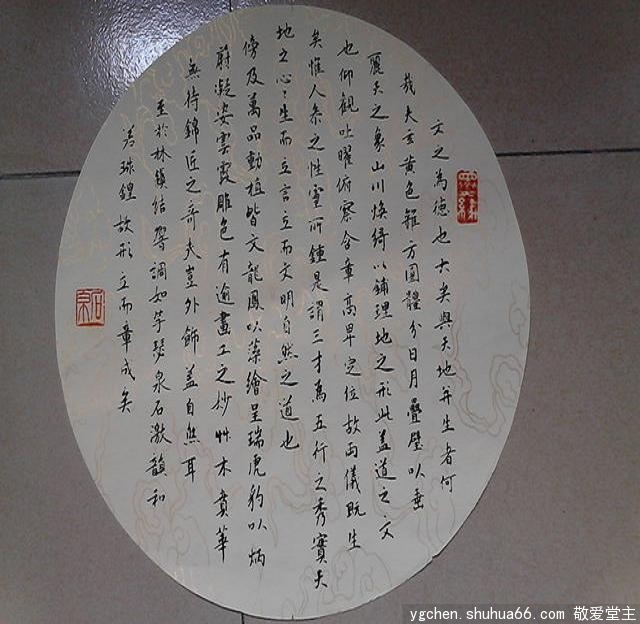 文之為德也大矣與天地并生者何
哉夫玄黄色雜方圓體分日月疊璧以垂
麗天之象山川煥綺以鋪理地之形此蓋道之文
也仰觀吐曜俯察含章高卑定位故兩儀既生
矣惟人參之性靈所鍾是謂三才為五行之秀實天
地之心心生而言立言立而文明自然之道也
傍及萬品動植皆文龍鳳以藻繪呈瑞虎豹以炳
蔚凝姿雲霞雕色有逾畫工之妙艸木賁華
無待錦匠之奇夫豈外飾蓋自然耳
至於林籟結響調如竽瑟泉石激韻和
若球鍠故形立而章成矣
ygchen.shuhua66.com 敬爱堂主